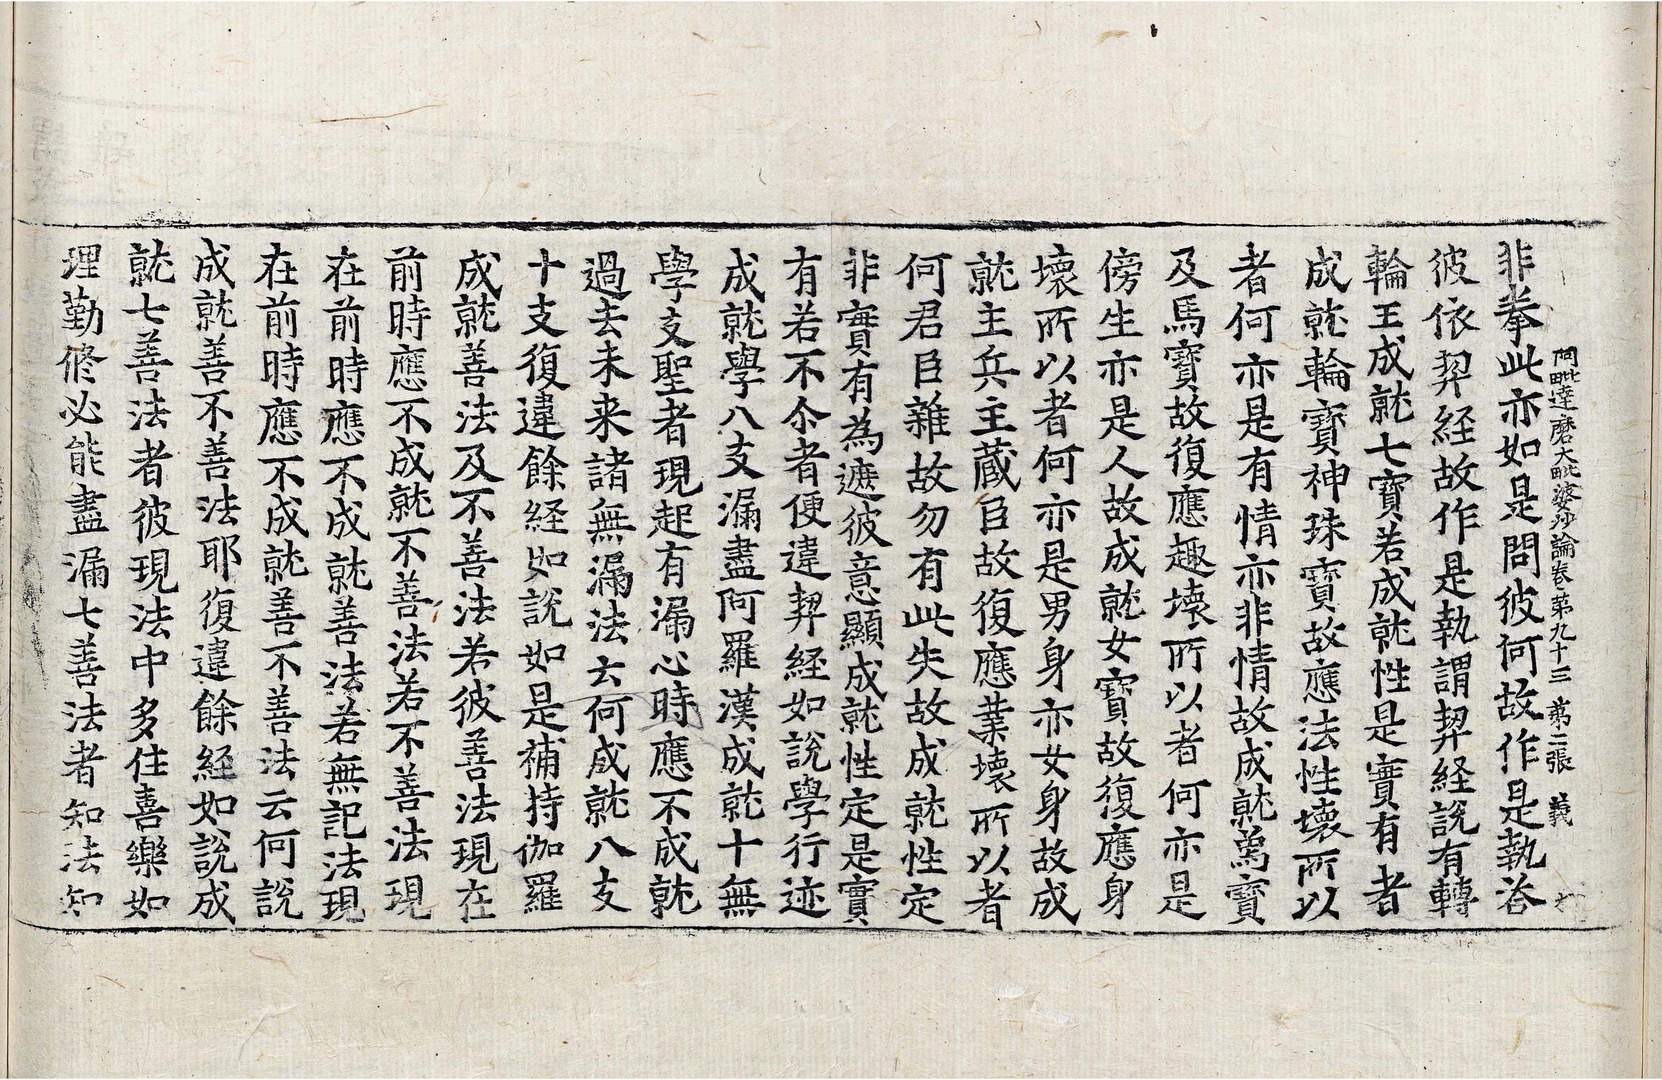 阿毗達磨大毗婆沙論卷第九十三 第二張 義
非拳此亦如是問彼何故作是執荅
彼依契経故作是執謂契経說有轉
輪王成就七寶若成就性是實有者
成就輪寶神珠寶故應法性壞所以
者何亦是有情亦非情故成就鳥寶
及馬寶故復應趣壞所以者何亦是
傍生亦是人故成就女寶故復應身
壞所以者何亦是男身亦女身故成
就主兵主藏臣故復應業壞所以者
何君臣雜故勿有此失故成就性定
非實有為遮彼意顯成就性定是實
有若不尒者便違契経如說學行迹
成就學八支漏盡阿羅漢成就十無
學支聖者現起有漏心時應不成就
過去未来諸無漏法云何成就八支
十支復違餘経如說如是補持伽羅
成就善法及不善法若彼善法現在
前時應不成就不善法若不善法現
在前時應不成就善法若無記法現
在前時應不成就善不善法云何說
成就善不善法耶復違餘経如說成
就七善法者彼現法中多住喜樂如
理勤修必能盡漏七善法者知法知